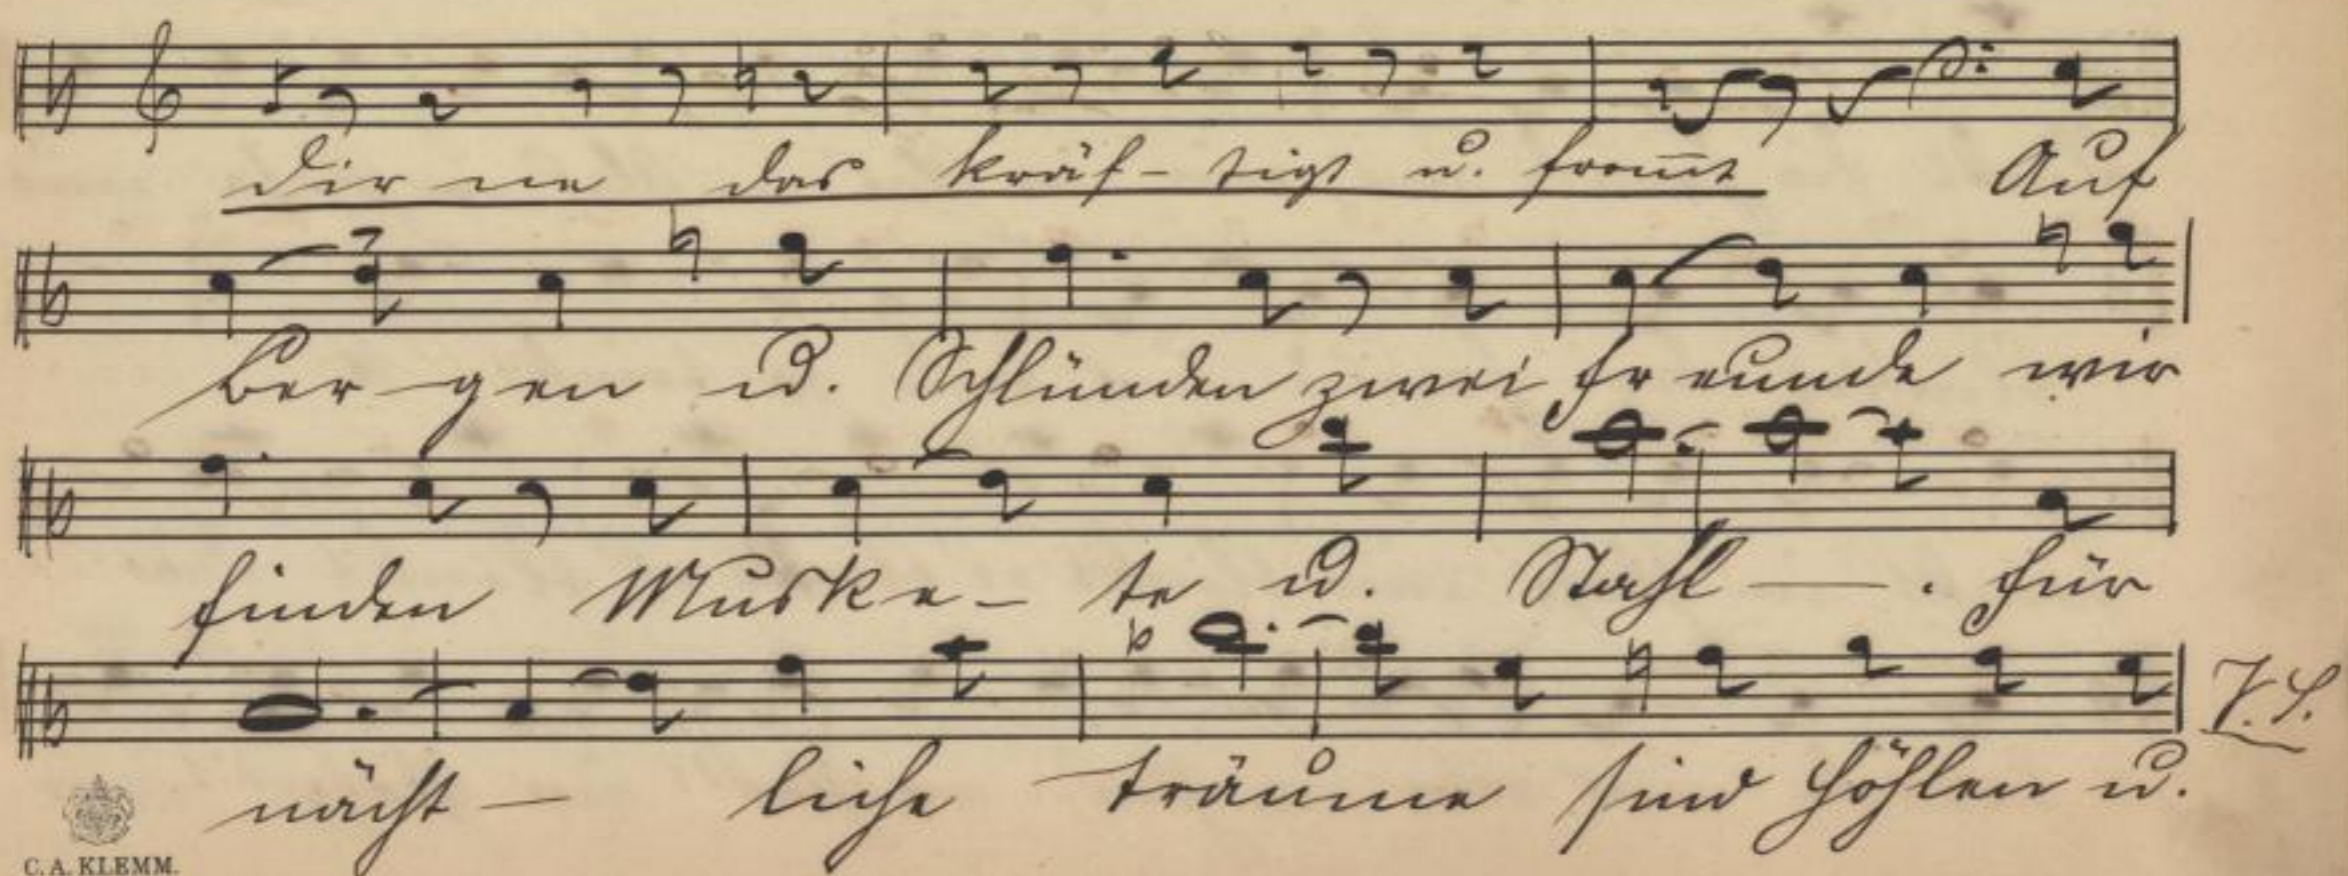 Dir ne das kräf - tigt u. fromt Auf
Ber - gen u. Schlünden zwei Freunde wir
finden Muske - te u. Stahl — . für
V.S.
nächt — liche Träume sind Höhlen u.
C. A. KLEMM.